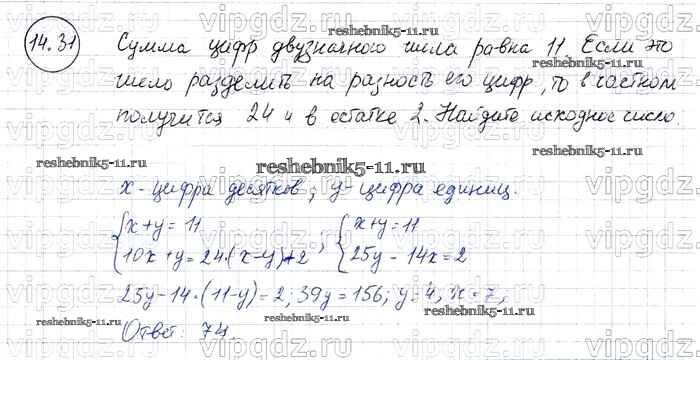 14.31
Сумма цифр двузначного числа равна 11. Если это
число разделить на разность его цифр, то в частном
получится 24 и в остатке 2. Найдите исходное число.
x - цифра десятков; y - цифра единиц.
{x+y=11 {x+y=11
{10x+y=24·(x-y)+2 ; {25y-14x=2
25y-14·(11-y)=2; 39y=156; y=4, x=7,
Ответ: 74.
reshebnik5-11.ru
vipgdz.ru